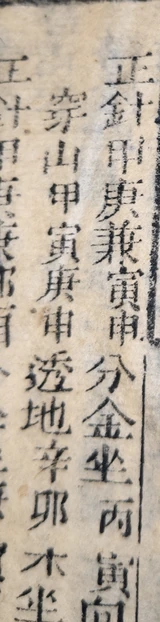 正針甲庚兼寅申分金坐丙寅向
穿山甲寅庚申透地辛卯木坐
正針甲庚兼卯酉分金坐